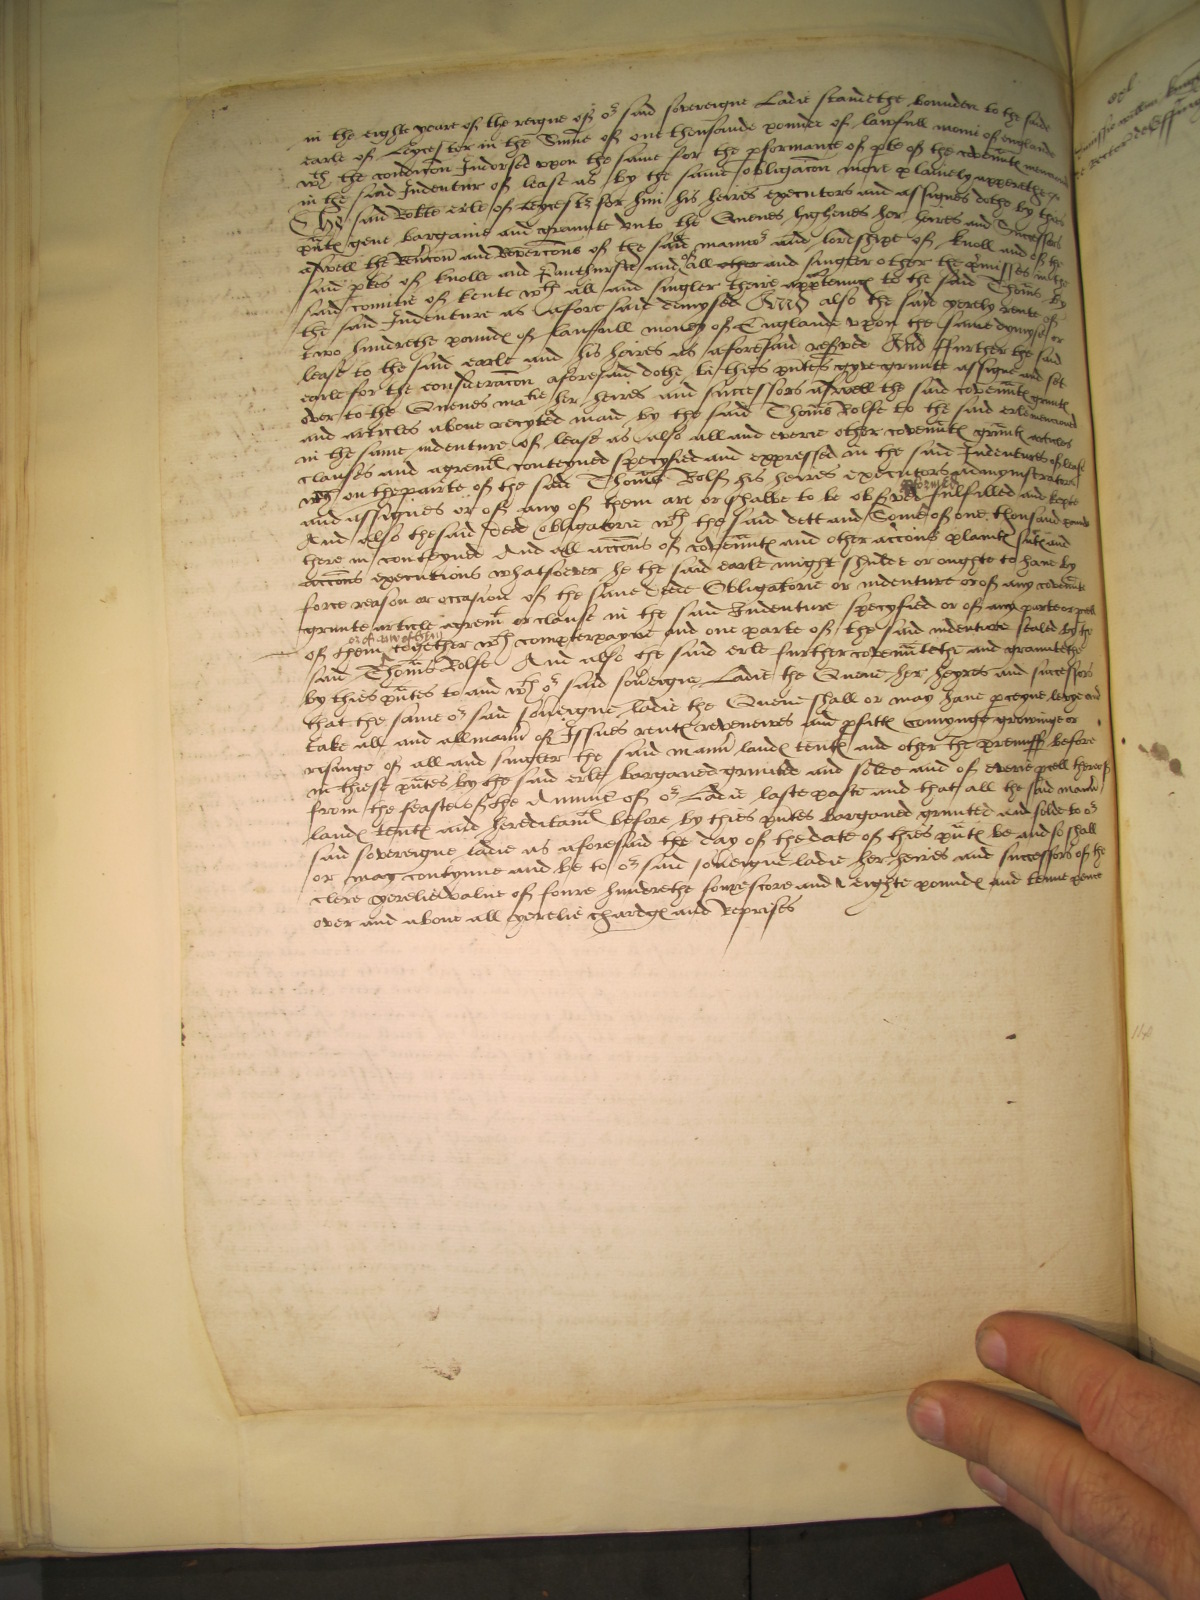 in the eighte yeare of the reigne of or said sovereigne Ladie standethe bounden to the saide
earle of Leycester in the Sume of one thousande pounde of lawfull monie of Englande
wth the condicon Indorsed upon the same for the pformance of pte of the covennts menconed
in the said Indentur of lease as by the same obligacon more plainely apperethe
The said Robte erle of Leycestr for him his heires executors and assignes dothe by thies
pnts geve bargaine and graunte unto the Quenes highenes her heires and Successors
aswell the Rencon and Revercons of the said mannor and lordshipe of Knoll and of the
said pkes of Knolle and Panthurste and of all other and singler other the pmisses in the
said Countie of Kente wth all and singler theire apptennces to the said Thoms by
the said Indenture as afore said demysed And also the said yerely rente of
two hundrethe pounds of laufull money of Englande upon the same demyse or
lease to the said earle and his heires as aforesaid resved And ffurther the said
earle for the consideracon aforesaid dothe bi thies pntes gyve graunte assigne and set
over to the Quenes matie her heires and successors aswell the said covennts grunts
and articles above recyted maid by the said Thoms Rolfe to the said erle menconed
in the same indenture of lease as also all and everie other covennts grunts articles
clauses and agremts conteyned specyfied and expressed in the said Indentures of lease
wch on the parte of the said Thoms Rolf his heires executors admynistrators
and assignes or of any of them are or shalbe to be obsved pformed fulfilled and kepte
And also the said dede Obligatorie wth the said dett and Some of one thousand pounds
there in conteynde And all accons of covennts and other accons plaints suts and
accons executions whatsoever he the said earle might shulde or oughte to have by
force reason or occasion of the same dede Obligatorie or indenture or of any covennte
graunte article agremt or clause in the said Indenture specyfied or of any parte or pcell
or of any of them
of them together wth compterpayne and one parte of the said indenture sealed by the
said Thoms Rolfe And also the said erle further covenntethe and grauntethe
by thies pntes to and wth or said soveigne Ladie the Quene her heyres and successors
that the same or said soveigne ladie the Quene shall or may have pceyve levye and
take all and all mannr of Issues rents revenewes and pfitts comynge growinge or
risinge of all and singler the said mannr lands tents and other the premisses before
in these pntes by the said erle barganed grunted and solde and of everie pcell thereof
from the feaste of the Annunc of or Ladie laste paste and that all the said mannr
lands tents and hereditamts before by thies pntes barganed grunted and solde to or
said sovereigne ladie as aforesaid the day of the date of thies pnts be and so shall
or may contynue and be to or said soveigne ladie her heires and successors of the
clere yerelie value of foure hundrethe fourescore and eighte pounds and tenne pence
over and above all yerelie chardgs and Reprises